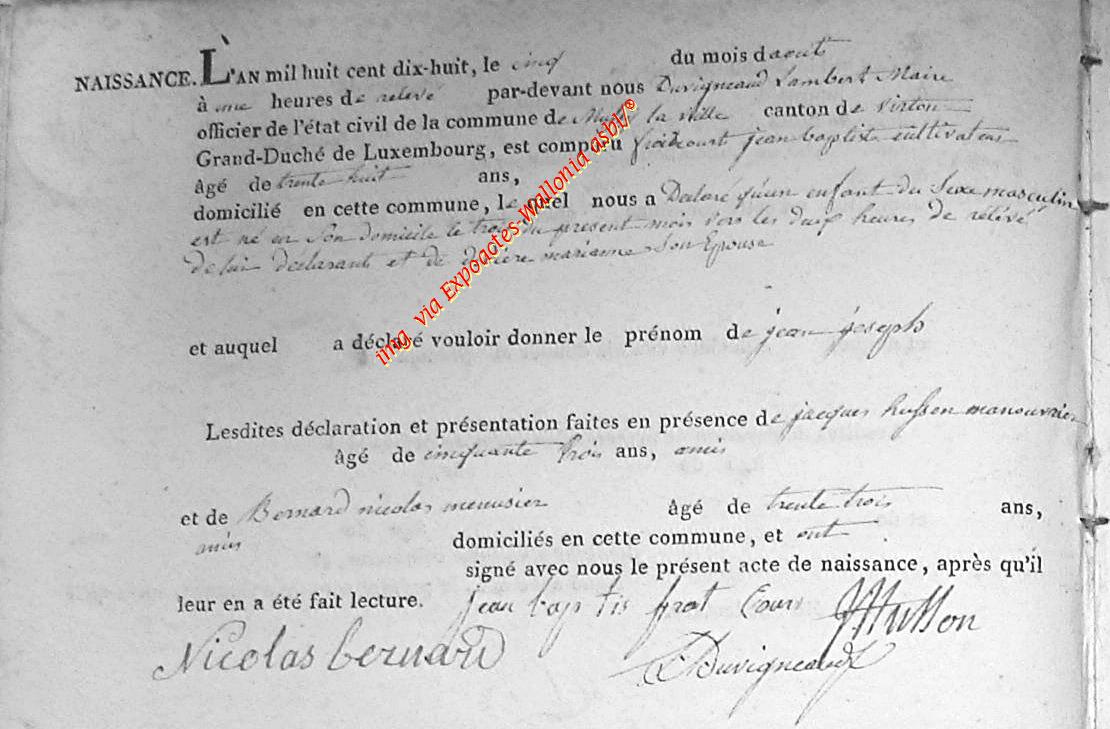 NAISSANCE. L'AN mil huit cent dix-huit, le cinq du mois d'aout
à une heures de relevé par-devant nous Duvigneaud Lambert Maire
officier de l'état civil de la commune de la ville canton de Virton
Grand-Duché de Luxembourg, est comparu froidcourt jean baptiste cultivateur
âgé de trente huit ans,
domicilié en cette commune, lequel nous a Declaré qu'un enfant du Sexe masculin
est né en Son domicile le trois du present mois vers les deux heures de relévé
de lui déclarant et de marianne Son Epouse
et auquel a déclaré vouloir donner le prénom de jean joseph
Lesdites déclaration et présentation faites en présence de jacques husson manouvrier
âgé de cinquante trois ans, amis
et de Bernard nicolas menusier âgé de trente trois ans,
amis domiciliés en cette commune, et ont
signé avec nous le présent acte de naissance, après qu'il
leur en a été fait lecture. jean bap tis frot Cour JHusson
Nicolas bernard LDuvigneaud
img. via Expoactes-Wallonia asbl/©